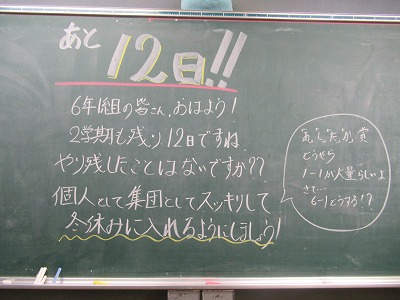 あと 12日!!
6年1組の皆さん、おはよう!
2学期も残り12日ですね
やり残したことはないですか??
個人として集団としてスッキリして
冬休みに入れるようにしましょう!
"あ,し,た,か,"賞
どうやら
1-1が大量らしいよ
さて…
6-1どうする!?